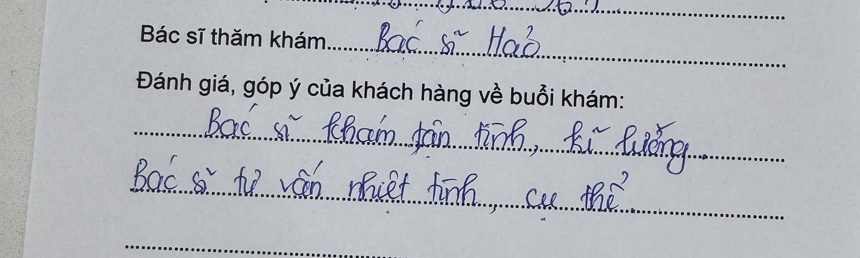 Bác sĩ thăm khám.......... Bác sĩ Hảo
Đánh giá, góp ý của khách hàng về buổi khám:
Bác sĩ khám tận tình, kĩ lưỡng.
Bác sĩ tư vấn nhiệt tình, cụ thể.